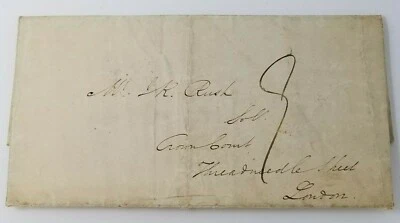 Mr. J K. Rush
Solr.
Crown Court
Threadneedle Street
London.